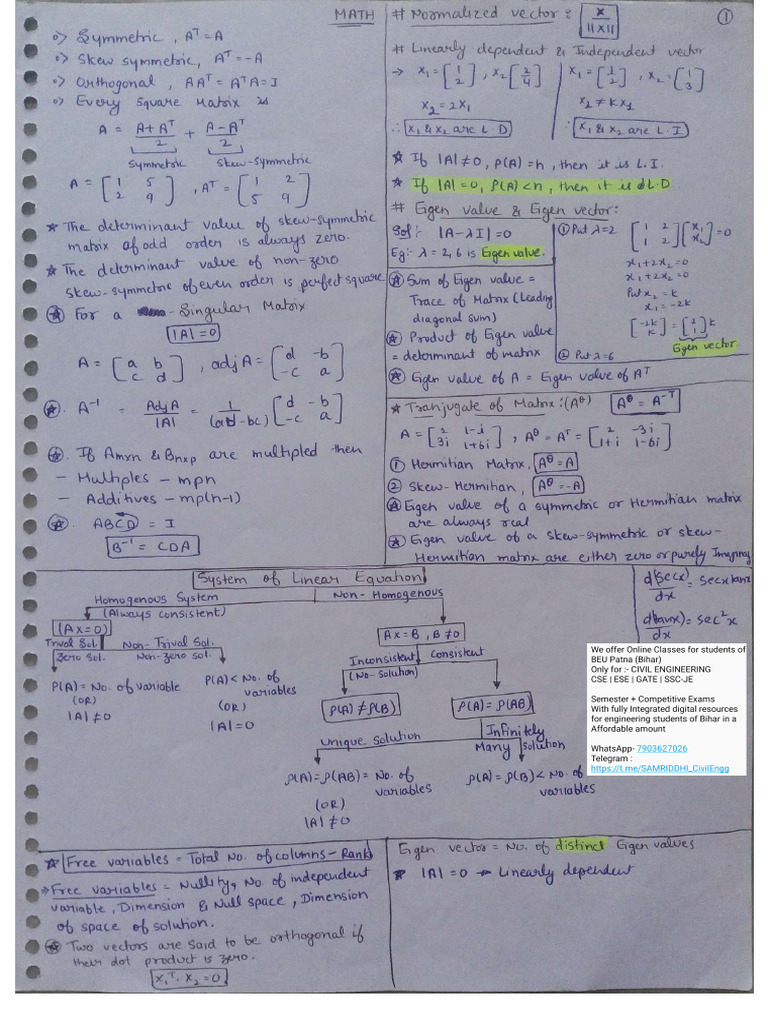 MATH
①
o> Symmetric, A^T = A
o> Skew symmetric, A^T = -A
o> Orthogonal, AA^T = A^TA = I
o> Every Square Matrix is
A = (A + A^T)/2 + (A - A^T)/2
Symmetric Skew-symmetric
A = [1 5; 2 9], A^T = [1 2; 5 9]
* The determinant value of skew-symmetric
matrix of odd order is always zero.
* The determinant value of non-zero
skew-symmetric of even order is perfect square
* For a Singular Matrix
|A| = 0
A = [a b; c d], adj A = [d -b; -c a]
*. A^-1 = Adj A/|A| = 1/(ad - bc) [d -b; -c a]
*. If Amxn & Bnxp are multipled then
- Multiples - mpn
- Additives - mp(n-1)
*. ABCD = I
B^-1 = CDA
# Normalized vector: x/||x||
# Linearly dependent & Independent vector
→ x₁ = [1; 2], x₂ [2; 4]
x₂ = 2x₁
∴ x₁ & x₂ are L.D
x₁ = [1; 2], x₂ = [1; 3]
x₂ ≠ kx₁
∴ x₁ & x₂ are L.I
* If |A| ≠ 0, ρ(A) = n, then it is L.I.
* If |A| = 0, ρ(A) < n, then it is L.D.
# Eigen value & Eigen vector:
Sol:- |A - λI| = 0
Eg:- λ = 2, 6 is Eigen value.
① Put λ = 2 [1 2; 1 2] [x₁; x₂] = 0
x₁ + 2x₂ = 0
x₁ + 2x₂ = 0
Put x₂ = k
x₁ = -2k
[-2k; k] = [2; 1] k
Eigen vector
② Put λ = 6
* Sum of Eigen value =
Trace of Matrix (Leading
diagonal sum)
* Product of Eigen value
= determinant of matrix
* Eigen value of A = Eigen value of A^T
* Tranjugate of Matrix: (A^θ) A^θ = A^-T
A = [2 1-i; 3i 1+6i], A^θ = A^T = [2 -3i; 1+i 1-6i]
① Hermitian Matrix, A^θ = A
② Skew-Hermitian, A^θ = -A
* Eigen value of a symmetric or Hermitian matrix
are always real
* Eigen value of a skew-symmetric or skew-
Hermition matrix are either zero or purely Imaginary
System of Linear Equation
Homogenous System
(Always consistent)
(Ax = 0)
Trival Sol.
Zero Sol.
Non-Trival Sol.
Non-zero sol.
ρ(A) = No. of variable
(OR)
|A| ≠ 0
ρ(A) < No. of
variables
(OR)
|A| = 0
Non-Homogenous
Ax = B, B ≠ 0
Inconsistent
(No-Solution)
Consistent
ρ(A) ≠ ρ(B)
ρ(A) = ρ(AB)
Unique Solution
Infinitely
Many Solution
ρ(A) = ρ(AB) = No. of
variables
(OR)
|A| ≠ 0
ρ(A) = ρ(B) < No. of
variables
d(secx)/dx = secx tanx
d(tanx)/dx = sec²x
We offer Online Classes for students of
BEU Patna (Bihar)
Only for :- CIVIL ENGINEERING
CSE | ESE | GATE | SSC-JE
Semester + Competitive Exams
With fully Integrated digital resources
for engineering students of Bihar in a
Affordable amount
WhatsApp- 7903627026
Telegram :
https://t.me/SAMRIDDHI_CivilEngg
* Free variables = Total No. of columns - Rank
→ Free variables = Nullity, No. of independent
variable, Dimension & Null space, Dimension
of space of solution.
* Two vectors are said to be orthogonal if
their dot product is zero.
x₁^T. x₂ = 0
Eigen vector = No. of distinct Eigen values
* |A| = 0 → Linearly dependent